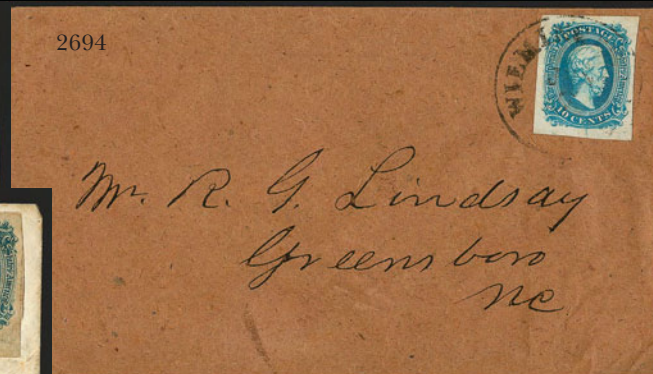 2694
POSTAGE
10 CENTS
Mr. R. G. Lindsay
Greensboro
NC